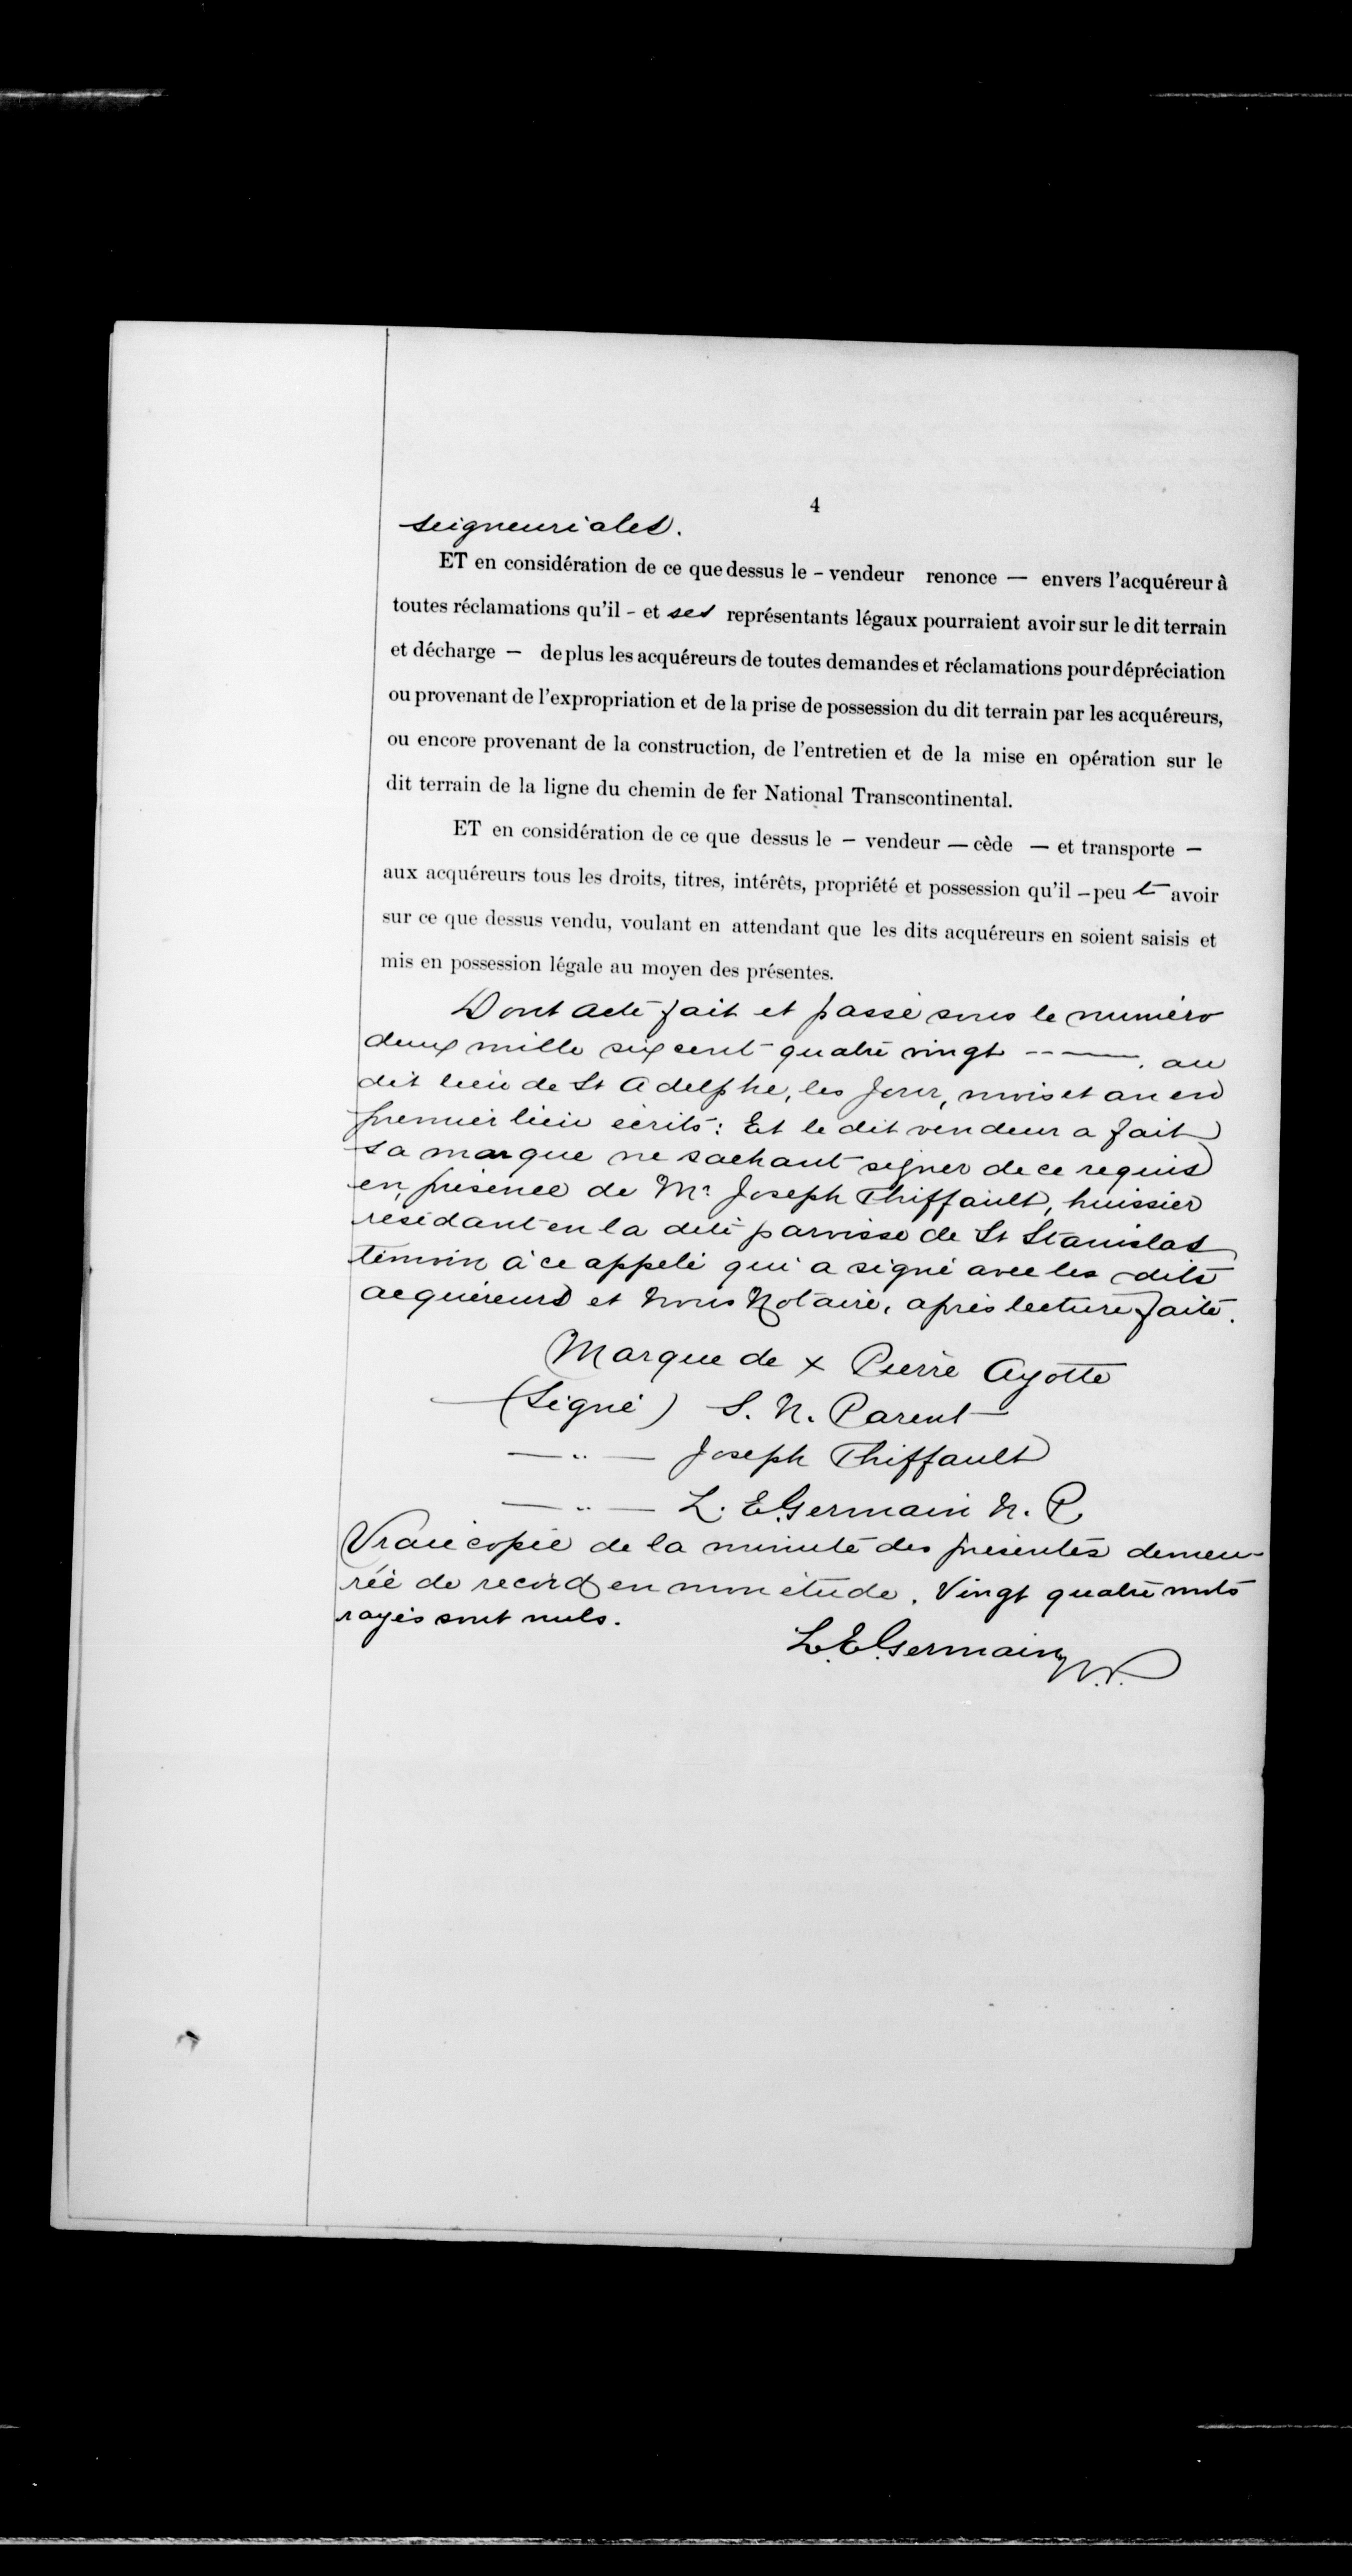 4
seigneuriales.
ET en considération de ce que dessus le - vendeur renonce — envers l'acquéreur à
toutes réclamations qu'il - et ses représentants légaux pourraient avoir sur le dit terrain
et décharge — de plus les acquéreurs de toutes demandes et réclamations pour dépréciation
ou provenant de l'expropriation et de la prise de possession du dit terrain par les acquéreurs,
ou encore provenant de la construction, de l'entretien et de la mise en opération sur le
dit terrain de la ligne du chemin de fer National Transcontinental.
ET en considération de ce que dessus le — vendeur — cède — et transporte —
aux acquéreurs tous les droits, titres, intérêts, propriété et possession qu'il - peut avoir
sur ce que dessus vendu, voulant en attendant que les dits acquéreurs en soient saisis et
mis en possession légale au moyen des présentes.
Dont acte fait et passé sous le numéro
deux mille six cent quatre vingt -----. au
dit lieu de St Adelphe, les jour, mois et an en
premier lieu écrits: Et le dit vendeur a fait
sa marque ne sachant signer de ce requis
en présence de Mr Joseph Thiffault, huissier
résidant en la dite paroisse de St Stanislas
témoin à ce appelé qui a signé avec les dits
acquéreurs et Nous Notaire, après lecture faite.
Marque de x Pierre Ayotte
(Signé) S. N. Parent
— " — Joseph Thiffault
— " — L. E. Germain N. P.
Vraie copie de la minute des présentes demeu-
rée de record en mon étude. Vingt quatre mots
rayés sont nuls.
L. E. Germain N.P.